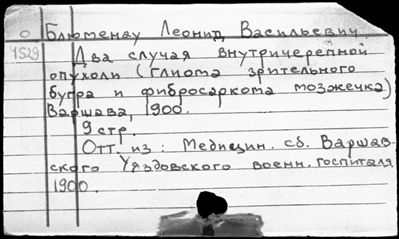 О Блюменау Леонид Васильевич.
1529 Два случая внутричерепной
опухоли (глиома зрительного
бугра и фибросаркома мозжечка)
Варшава, 1900.
9 стр.
Отт. из: Медицин. сб. Варшав
ского Уяздовского военн. госпиталя
1900.